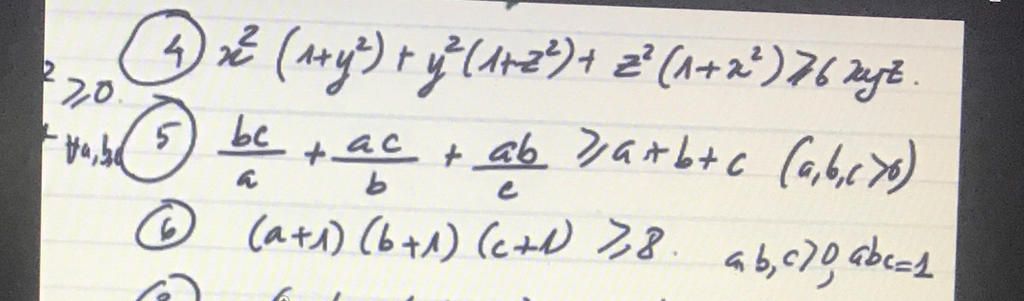 ④ x² (1+y²) + y²(1+z²) + z²(1+x²) ≥ 6 xyz.
² ≥ 0.
⑤ bc/a + ac/b + ab/c ≥ a + b + c (a,b,c>0)
⑥ (a+1) (b+1) (c+1) ≥ 8. a,b,c>0, abc=1